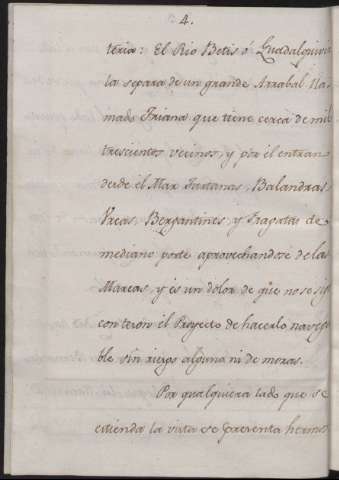 4.
teria: El Rio Betis ó Guadalquivir
la separa de un grande Arrabal lla-
mado Triana que tiene cerca de mil
trescientos vecinos, y por él entran
desde el Mar Tartanas, Balandras
Urcas, Bergantines, y Fragatas de
mediano porte aprovechandose de las
Mareas, y és un dolor de que no se
con teson el Proyecto de hacerlo navega
ble sin riesgo alguno ni demoras.
Por qualquiera lado que se
estienda la vista se presenta hermos